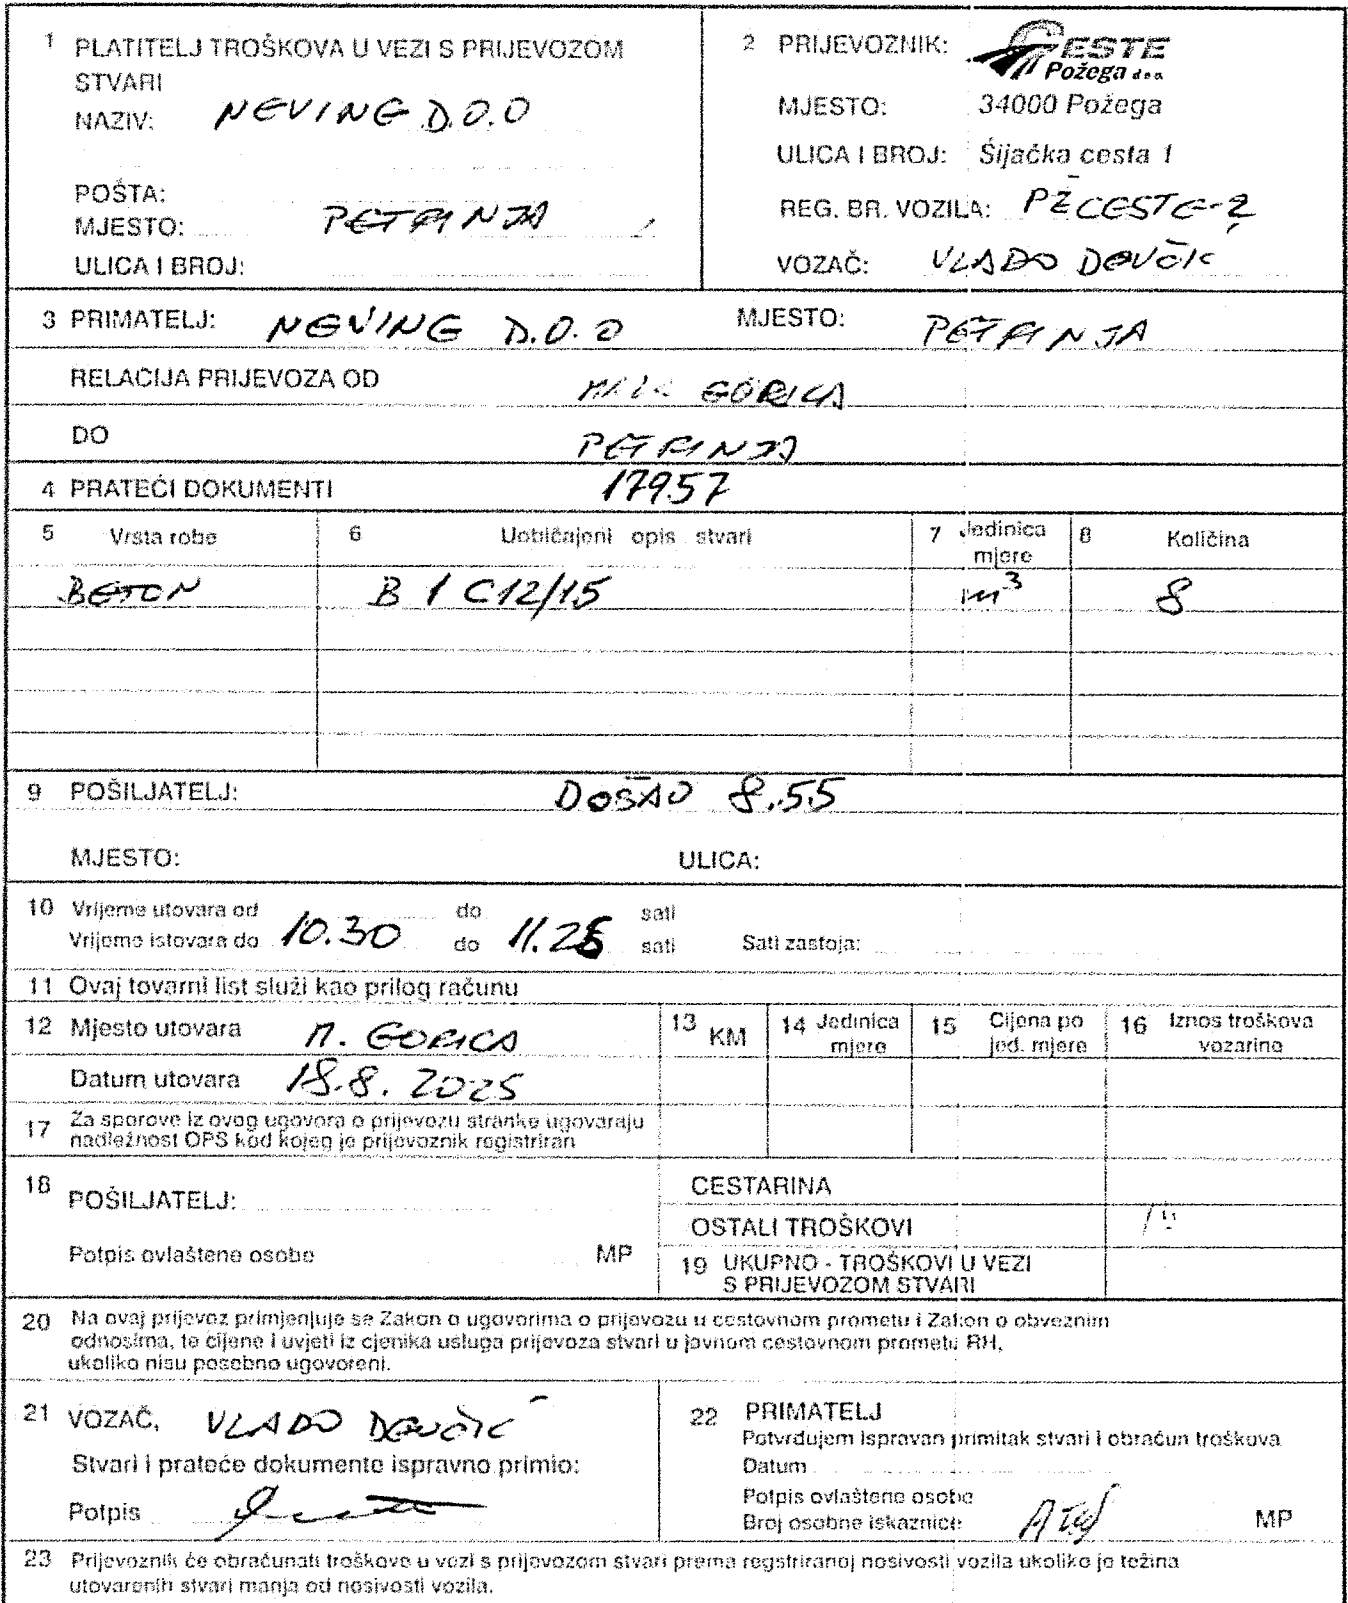 1 PLATITELJ TROŠKOVA U VEZI S PRIJEVOZOM
STVARI
NAZIV: NEVING D.O.O
POŠTA:
MJESTO: PETRINJA
ULICA I BROJ:
2 PRIJEVOZNIK: CESTE
Požega d.o.o.
MJESTO: 34000 Požega
ULICA I BROJ: Šijačka cesta 1
REG. BR. VOZILA: PŽ CESTE-2
VOZAČ: VLADO DOVČIĆ
3 PRIMATELJ: NEVING D.O.O MJESTO: PETRINJA
RELACIJA PRIJEVOZA OD MALA GORICA
DO PETRINJA
4 PRATEĆI DOKUMENTI 17957
5 Vrsta robe 6 Uobičajeni opis stvari 7 Jedinica mjere 8 Količina
BETON B 1 C12/15 m³ 8
9 POŠILJATELJ: DOŠAO 8.55
MJESTO: ULICA:
10 Vrijeme utovara od do sati
Vrijeme istovara do 10.30 do 11.25 sati Sati zastoja:
11 Ovaj tovarni list služi kao prilog računu
12 Mjesto utovara M. GORICA
Datum utovara 18.8. 2025
13 KM 14 Jedinica mjere 15 Cijena po jed. mjere 16 Iznos troškova vozarine
17 Za sporove iz ovog ugovora o prijevozu stranke ugovaraju
nadležnost OPS kod kojeg je prijevoznik registriran
18 POŠILJATELJ:
Potpis ovlaštene osobe MP
CESTARINA
OSTALI TROŠKOVI
19 UKUPNO - TROŠKOVI U VEZI
S PRIJEVOZOM STVARI
20 Na ovaj prijevoz primjenjuje se Zakon o ugovorima o prijevozu u cestovnom prometu i Zakon o obveznim
odnosima, te cijene i uvjeti iz cjenika usluga prijevoza stvari u javnom cestovnom prometu RH,
ukoliko nisu posebno ugovoreni.
21 VOZAČ, VLADO DOVČIĆ
Stvari i prateće dokumente ispravno primio:
Potpis
22 PRIMATELJ
Potvrđujem ispravan primitak stvari i obračun troškova
Datum
Potpis ovlaštene osobe
Broj osobne iskaznice MP
23 Prijevoznik će obračunati troškove u vezi s prijevozom stvari prema registriranoj nosivosti vozila ukoliko je težina
utovarenih stvari manja od nosivosti vozila.